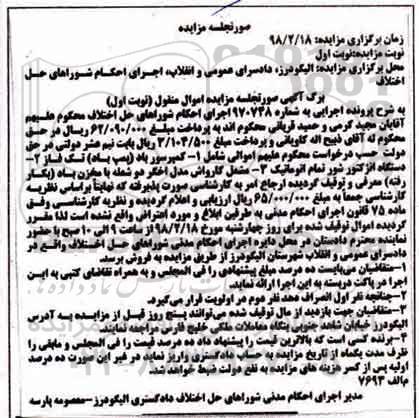 صورتجلسه مزایده
زمان برگزاری مزایده: ۹۸/۲/۱۸
نوبت مزایده:نوبت اول
محل برگزاری مزایده: الیگودرز، دادسرای عمومی و انقلاب، اجرای احکام شوراهای حل
اختلاف
برگ آگهی صورتجلسه مزایده اموال منقول (نوبت اول)
به شرح پرونده اجرایی به شماره ۹۷۰۷۴۸ اجرای احکام شوراهای حل اختلاف محکوم علیهم
آقایان مجید کرمی و حمید قربانی محکوم اند به پرداخت مبلغ ۶۲/۰۹۰/۰۰۰ ریال در حق
محکوم له آقای ذبیح اله کاویانی و پرداخت مبلغ ۳/۱۰۴/۵۰۰ ریال بابت نیم عشر دولتی در حق
دولت حسب درخواست محکوم علیهم اموالی شامل ۱- کمپرسور باد (پمپ باد) تک فاز ۲-
دستگاه انژکتور شور تمام اتوماتیک ۳- مشعل کارواش مدل اخگر دو شعله با مخزن باد (بکار
رفته) معرفی و توقیف گردیده ارجاع امر به کارشناسی صورت پذیرفته که نهایتا براساس نظریه
کارشناسی جمعا به مبلغ ۶۵/۰۰۰/۰۰۰ ریال ارزیابی و اعلام گردیده و نظریه کارشناسی وفق
ماده ۷۵ قانون اجرای احکام مدنی به طرفین ابلاغ و مورد اعتراض واقع نشده است لذا مقرر
گردیده اموال توقیف شده برای روز چهارشنبه مورخ ۹۸/۲/۱۸ از ساعت ۹ الی ۱۰ صبح با حضور
نماینده محترم دادستان در محل دایره اجرای احکام مدنی شوراهای حل اختلاف واقع در
دادسرای عمومی و انقلاب شهرستان الیگودرز از طریق مزایده به فروش برسد.
۱-متقاضیان می‌بایست ده درصد مبلغ پیشنهادی را فی المجلس و به همراه تقاضای کتبی به این
اجرا در پاکت دربسته به این اجرا ارائه نمایند.
۲-چنانچه نفر اول انصراف دهد نفر دوم در اولویت قرار می‌گیرد.
۳-متقاضیان جهت بازدید از مال توقیف شده می‌توانند پنج روز قبل از مزایده به آدرس
الیگودرز خیابان شاهد جنوبی بنگاه معاملات ملکی خلیج فارس مراجعه نمایند.
۴-برنده کسی است که بالاترین قیمت را پیشنهاد داد ده درصد قیمت را فی المجلس و مابقی را
ظرف مدت یکماه از تاریخ مزایده به حساب دادگستری واریز نماید در غیر این صورت ده درصد
اولیه پس از کسر هزینه های مزایده به نفع دولت ضبط خواهد شد.
م/الف ۷۶۹۳
مدیر اجرای احکام مدنی شوراهای حل اختلاف دادگستری الیگودرز-معصومه پارسه